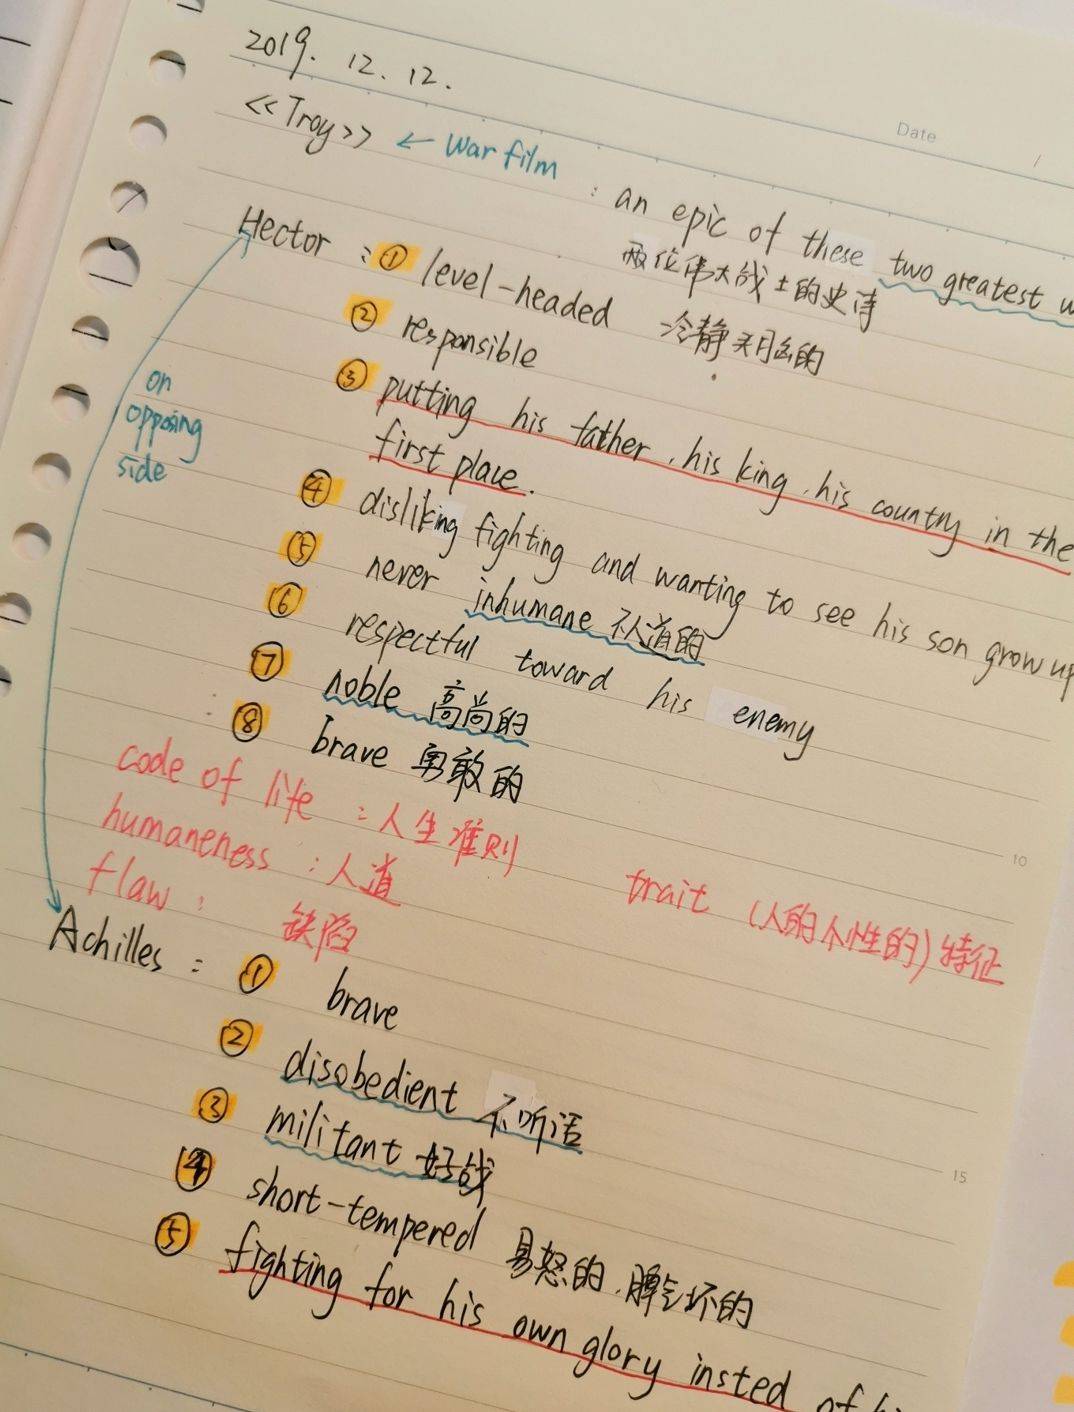 2019. 12. 12.
Date
<<Troy>> ← War film : an epic of these two greatest
两位伟大战士的史诗
Hector : ① level-headed 冷静明的
② responsible
③ putting his father, his king, his country in the
first place.
on
opposing
side
④ disliking fighting and wanting to see his son grow up
⑤ never inhumane 不人道的
⑥ respectful toward his enemy
⑦ noble 高尚的
⑧ brave 勇敢的
code of life : 人生准则
humaneness : 人道
trait (人的个性的)特征
flaw : 缺陷
10
Achilles : ① brave
② disobedient 不听话
③ militant 好战
15
④ short-tempered 易怒的,脾气坏的
⑤ fighting for his own glory insted of